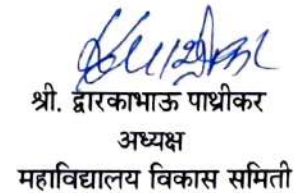 श्री. द्वारकाभाऊ पाथ्रीकर
अध्यक्ष
महाविद्यालय विकास समिती